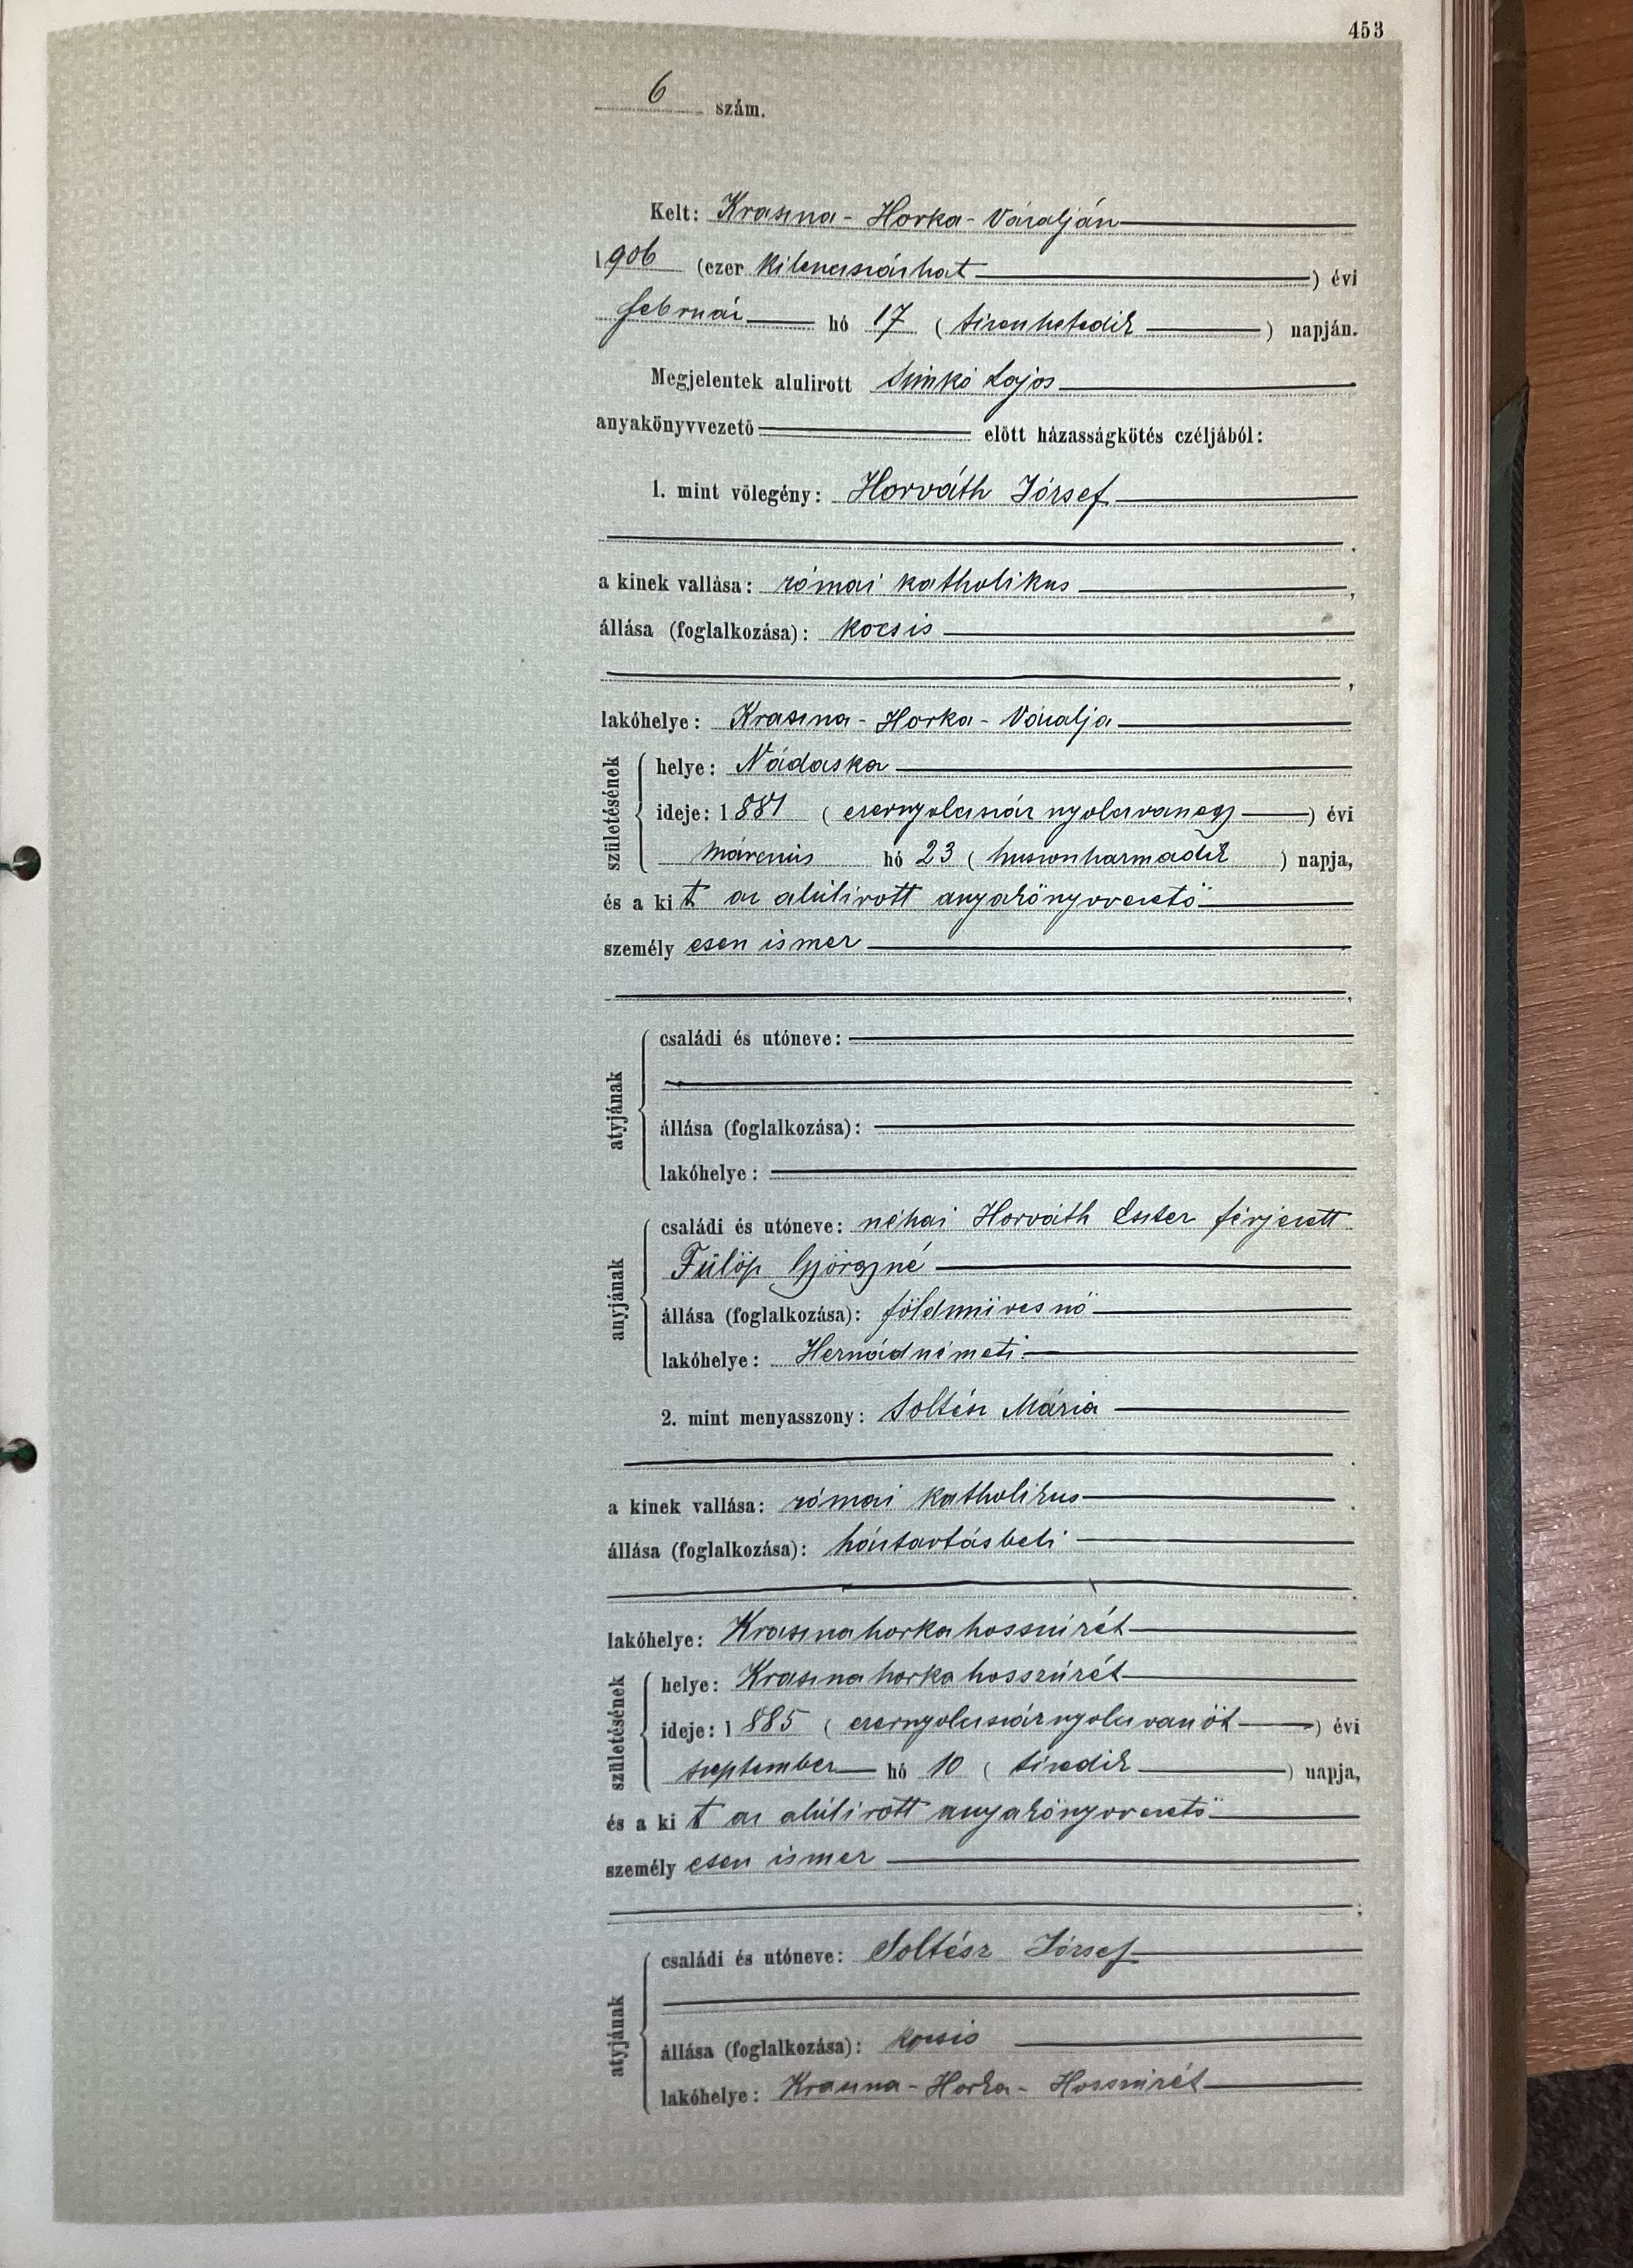 453
6 szám.
Kelt: Kraszna-Horka-Váralján
1906 (ezer kilenczszázhat) évi
február hó 17 (tizenhetedik) napján.
Megjelentek alulirott Simkó Lajos
anyakönyvvezető előtt házasságkötés czéljából:
1. mint völegény: Horváth József
a kinek vallása: római katholikus,
állása (foglalkozása): kocsis
,
lakóhelye: Kraszna-Horka-Váralja
születésének
helye: Nádaska
ideje: 1881 (ezernyolczszáz nyolczvanegy) évi
márczius hó 23 (huszonharmadik) napja,
és a kit az alúlirott anyakönyvvezető
személyesen ismer
,
atyjának
családi és utóneve:
állása (foglalkozása):
lakóhelye:
anyjának
családi és utóneve: néhai Horváth Eszter férjezett
Fülöp Györgyné
állása (foglalkozása): földmüvesnö
lakóhelye: Hernádnémeti
2. mint menyasszony: Soltész Mária
a kinek vallása: római katholikus
állása (foglalkozása): háztartásbeli
lakóhelye: Krasznahorkahosszúrét
születésének
helye: Krasznahorkahosszúrét
ideje: 1885 (ezernyolczszáznyolczvanöt) évi
szeptember hó 10 (tizedik) napja,
és a kit az alúlirott anyakönyvvezető
személyesen ismer
;
atyjának
családi és utóneve: Soltész József
állása (foglalkozása): kocsis
lakóhelye: Kraszna-Horka-Hosszúrét